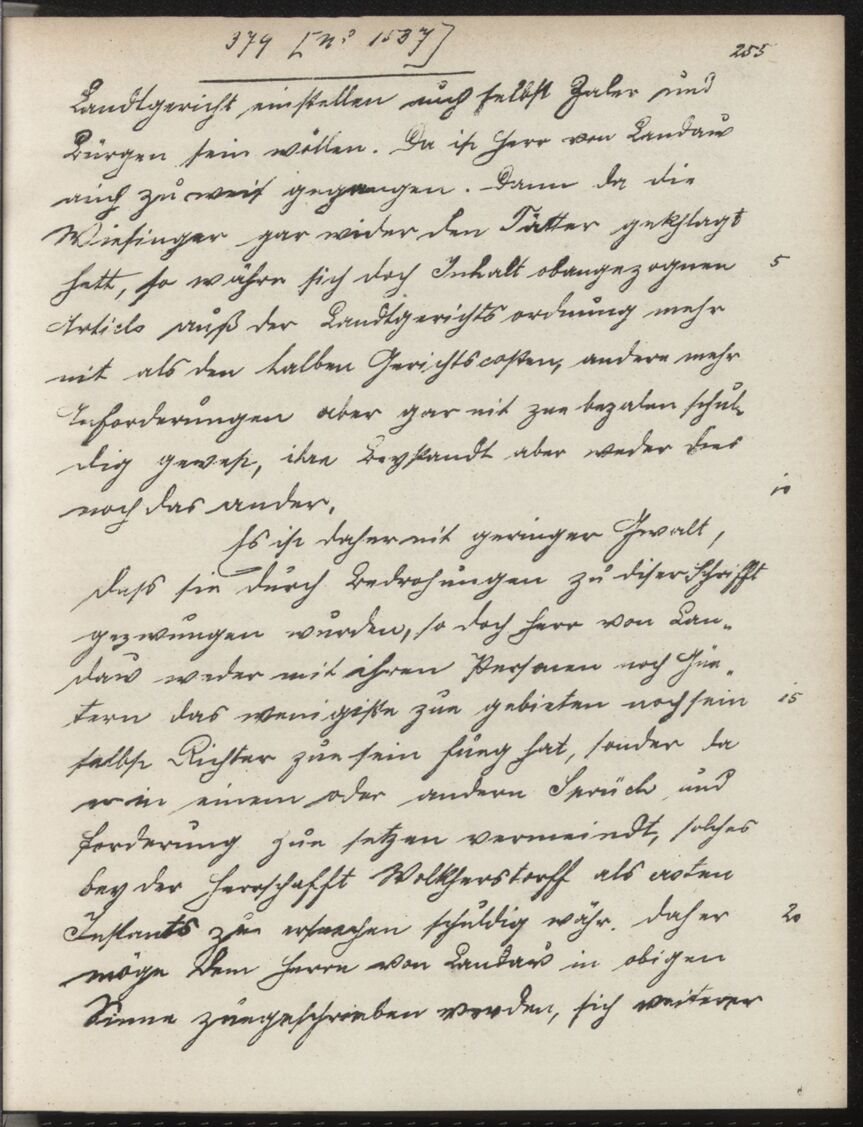 379 [No 1537]
255
Landtgericht einstellen auch selbst Zaler und
Bürgen sein wöllen. Da ist Herr von Landaw
auch zu weit gegangen. Dann da die
Wiesinger gar wider den Tätter gekhlagt
hett, so währe sich doch Inhalt obangezognen 5
Articls auß der Landtgerichtsordnung mehr
nit als den halben Gerichtscosten, andere mehr
Anforderungen aber gar nit zue bezalen schul-
dig gewest, ihre Beystandt aber weder dies
noch das ander. 10
Es ist daher nit geringer Gwalt,
dass sie durch Bedrohungen zu diser Schrifft
gezwungen wurden, so doch Herr von Lan-
daw weder mit ihren Personen noch Güe-
tern das wenigiste zue gebieten noch sein 15
selbst Richter zue sein fueg hat, sonder da
er in einem oder andern Sprüch und
forderung zue setzen vermeindt, solches
bey der Herrschafft Wolkherstorff als ersten
Instants zu ersuechen schuldig währ. Daher 20
möge dem Herrn von Landaw in obigen
Sinne zuegeschrieben werden, sich weiterer